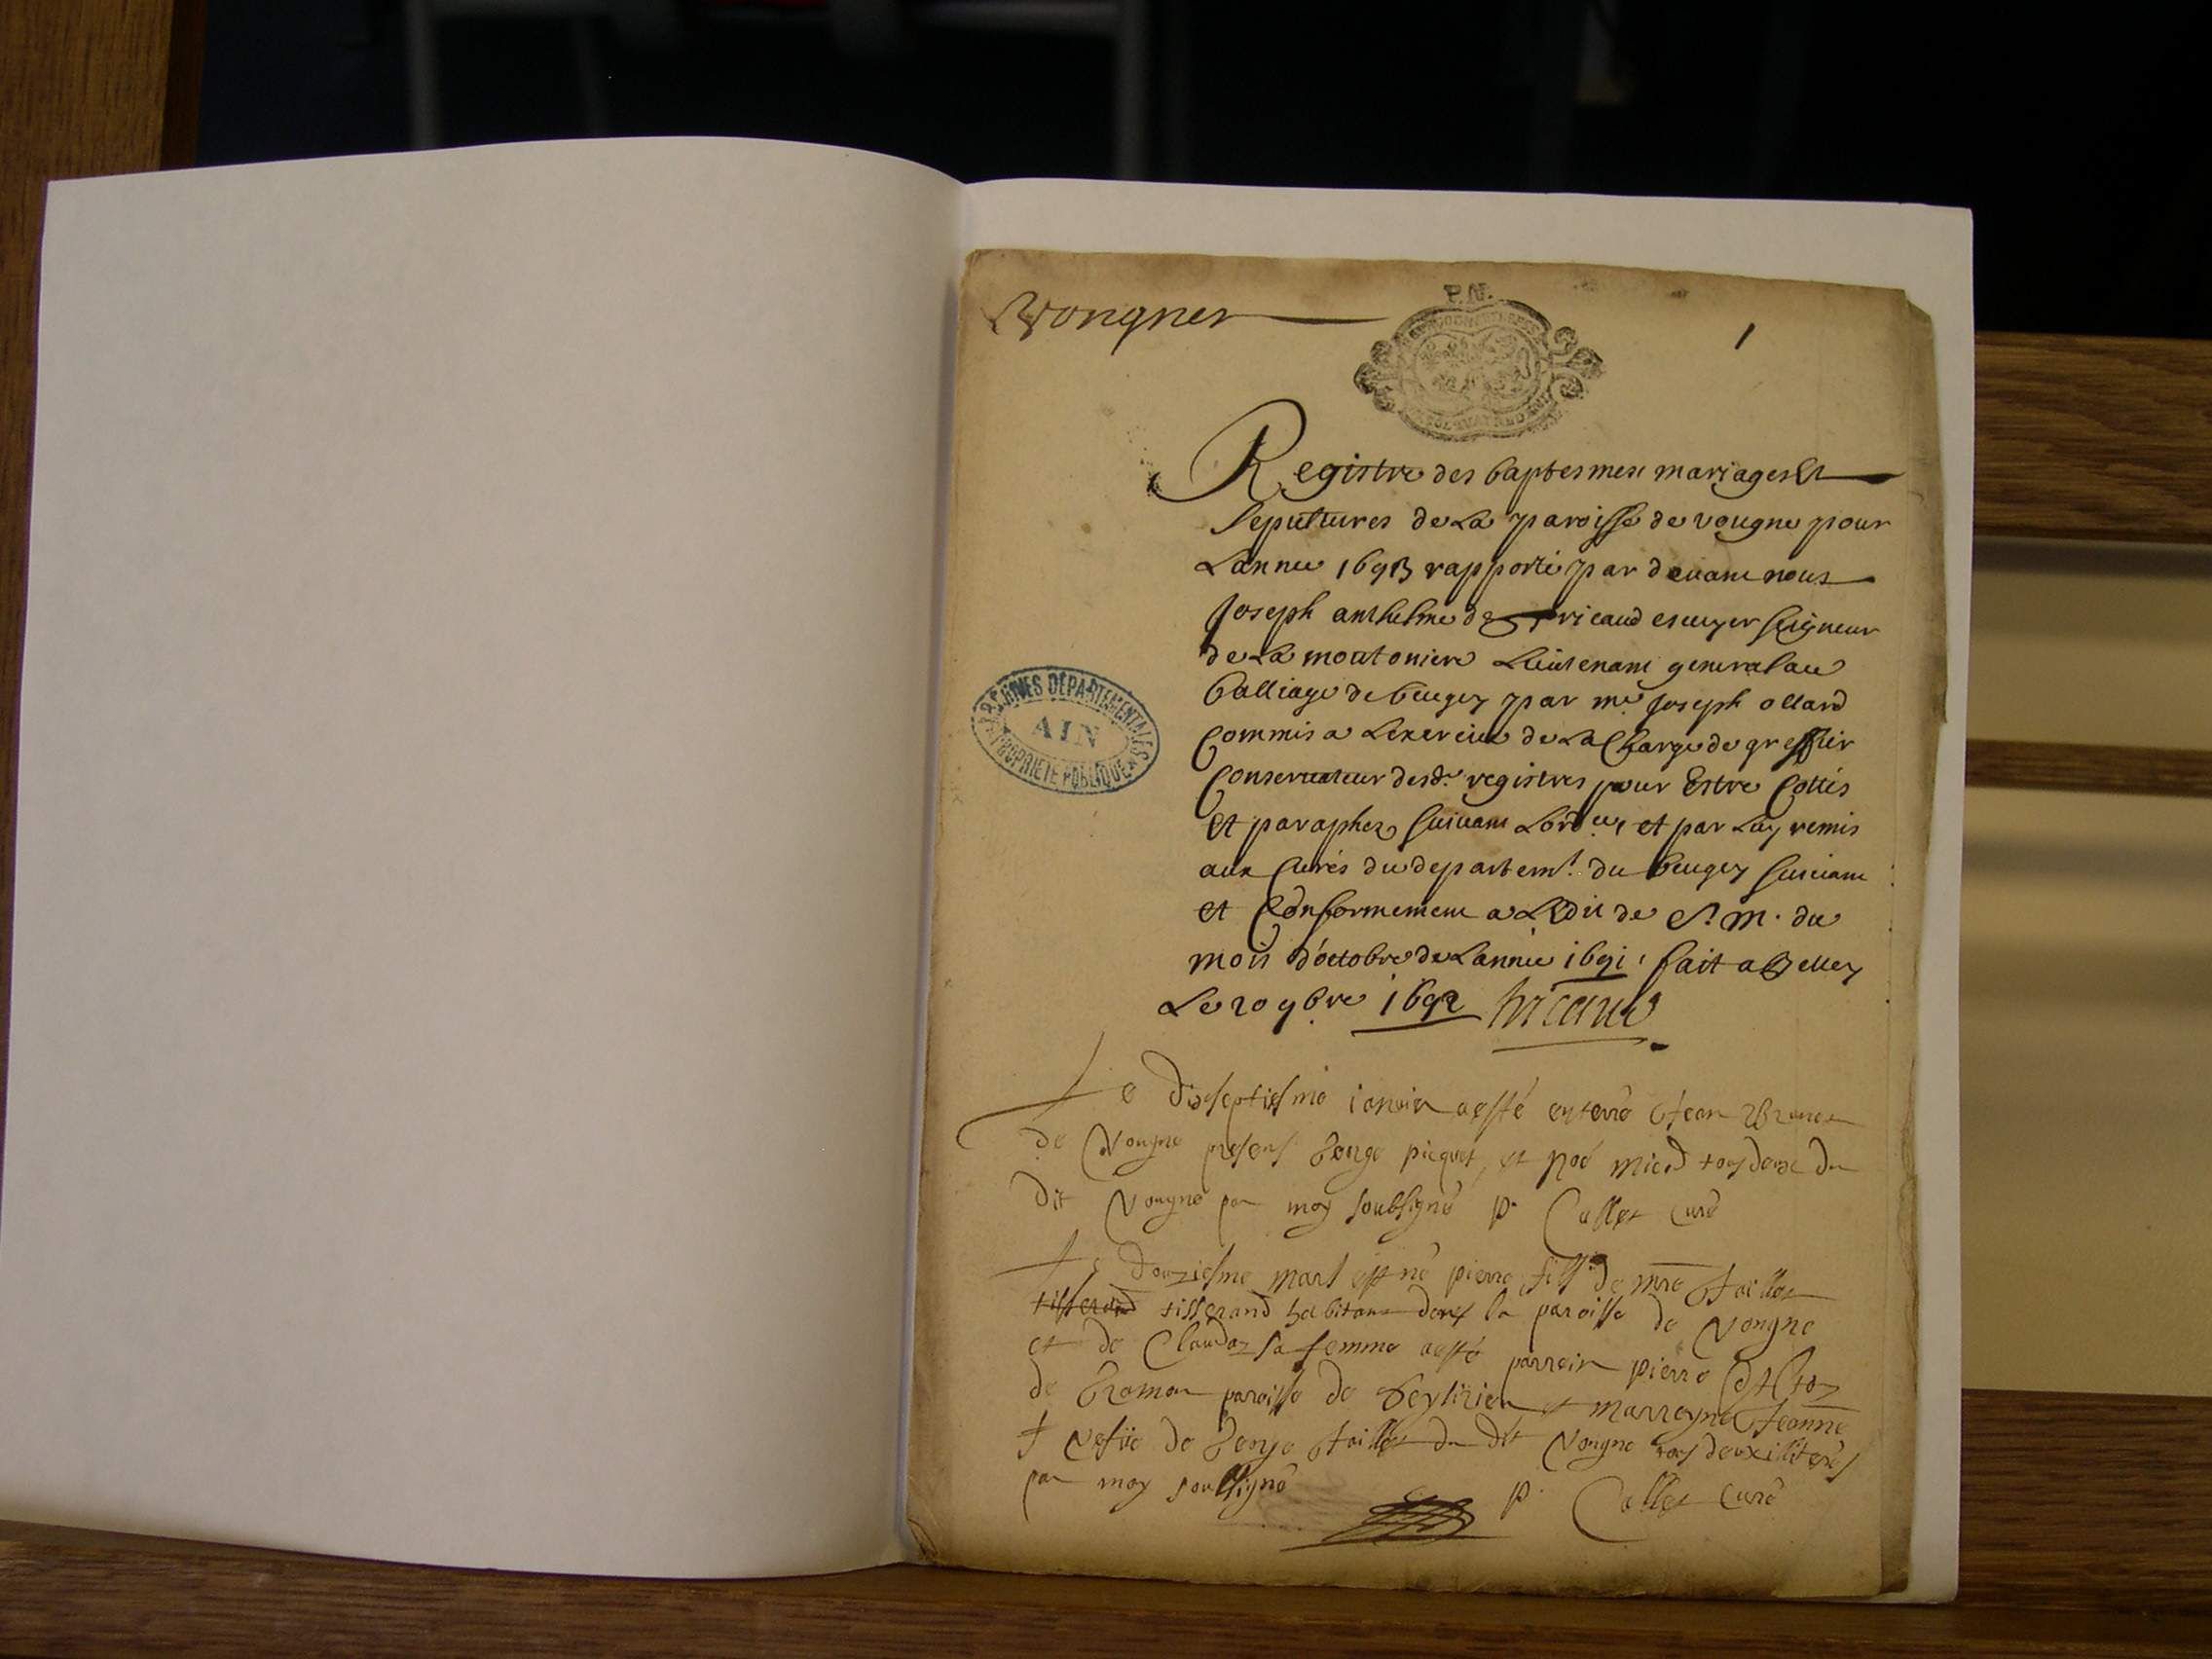 Vongnes
P.N.
1
Registre des baptesmes mariages Et
sepultures de La paroisse de vougne pour
Lannee 1693 rapporté par devant nous
Joseph anthelme de Tricaud escuyer seigneur
de La moutoniere Lieutenant general au
balliage de beugey par me Joseph ollard
Commis a Lexercice de La Charge de greffier
Conservateur desd. registres pour Estre Cottés
Et paraphez suivant Lord.ce et par Luy remis
aux Curés du departemt. du beugey suivant
et Conformement a LEdit de S. M. du
mois d'octobre de Lannée 1691 fait a Belley
Le 20 9bre 1692 Tricaud
ARCHIVES DEPARTEMENTALES
AIN
PROPRIETE PUBLIQUE
Le dixseptiesme ianvier a esté enterré Jean
de Vougne presens George picquet, et Noé tous deux du
dit Vougne par moy soubsigné p. Collet Curé
Le douziesme mars est né pierre fils de mre
tisserand tisserand habitant dans la paroisse de Vongne
et de Claudaz sa femme a esté parrein pierre
de paroisse de Ceyzirieu et marreyne Jeanne
de George du dit Vongne tous deux illiterés
par moy soubsigné p. Collet Curé